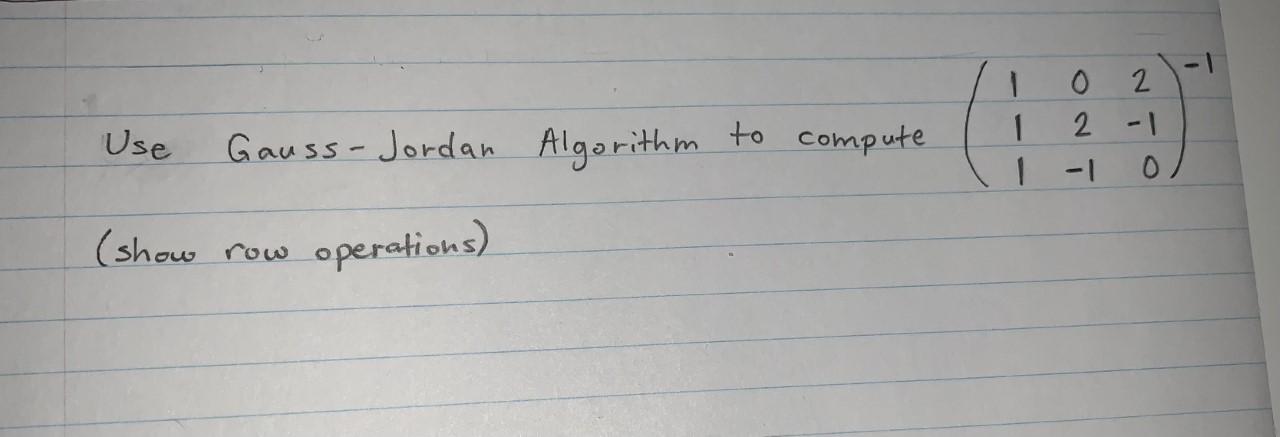 Use Gauss-Jordan Algorithm to compute
( 1 0 2
1 2 -1
1 -1 0 )^-1
(show row operations)